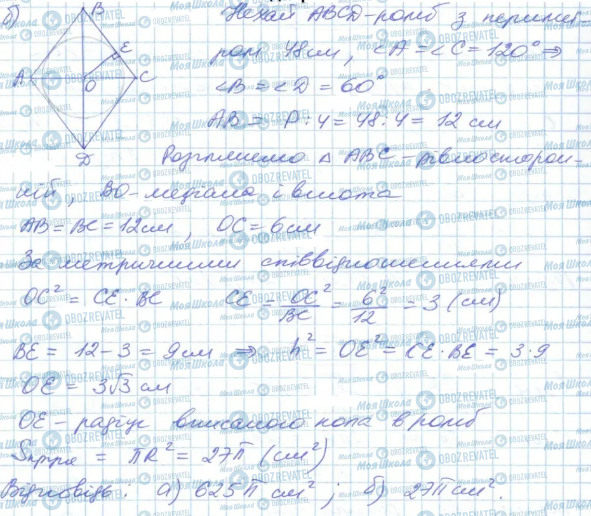 б) B Нехай ABCD - ромб з перимет-
ром 48 см, <A = <C = 120° ⇒
E
A O C <B = <D = 60°
AB = P : 4 = 48 : 4 = 12 см
D Розглянемо △ ABC - рівносторон-
ній, BO - медіана і висота
AB = BC = 12 см, OC = 6 см
За метричними співвідношеннями
OC² = CE · BC CE = OC²/BC = 6²/12 = 3 (см)
BE = 12 - 3 = 9 см ⇒ h² = OE² = CE · BE = 3 · 9
OE = 3√3 см
OE - радіус вписаного кола в ромб
Sкруга = πR² = 27π (см²)
Відповідь: а) 625π см²; б) 27π см².
Моя Школа
OBOZREVATEL